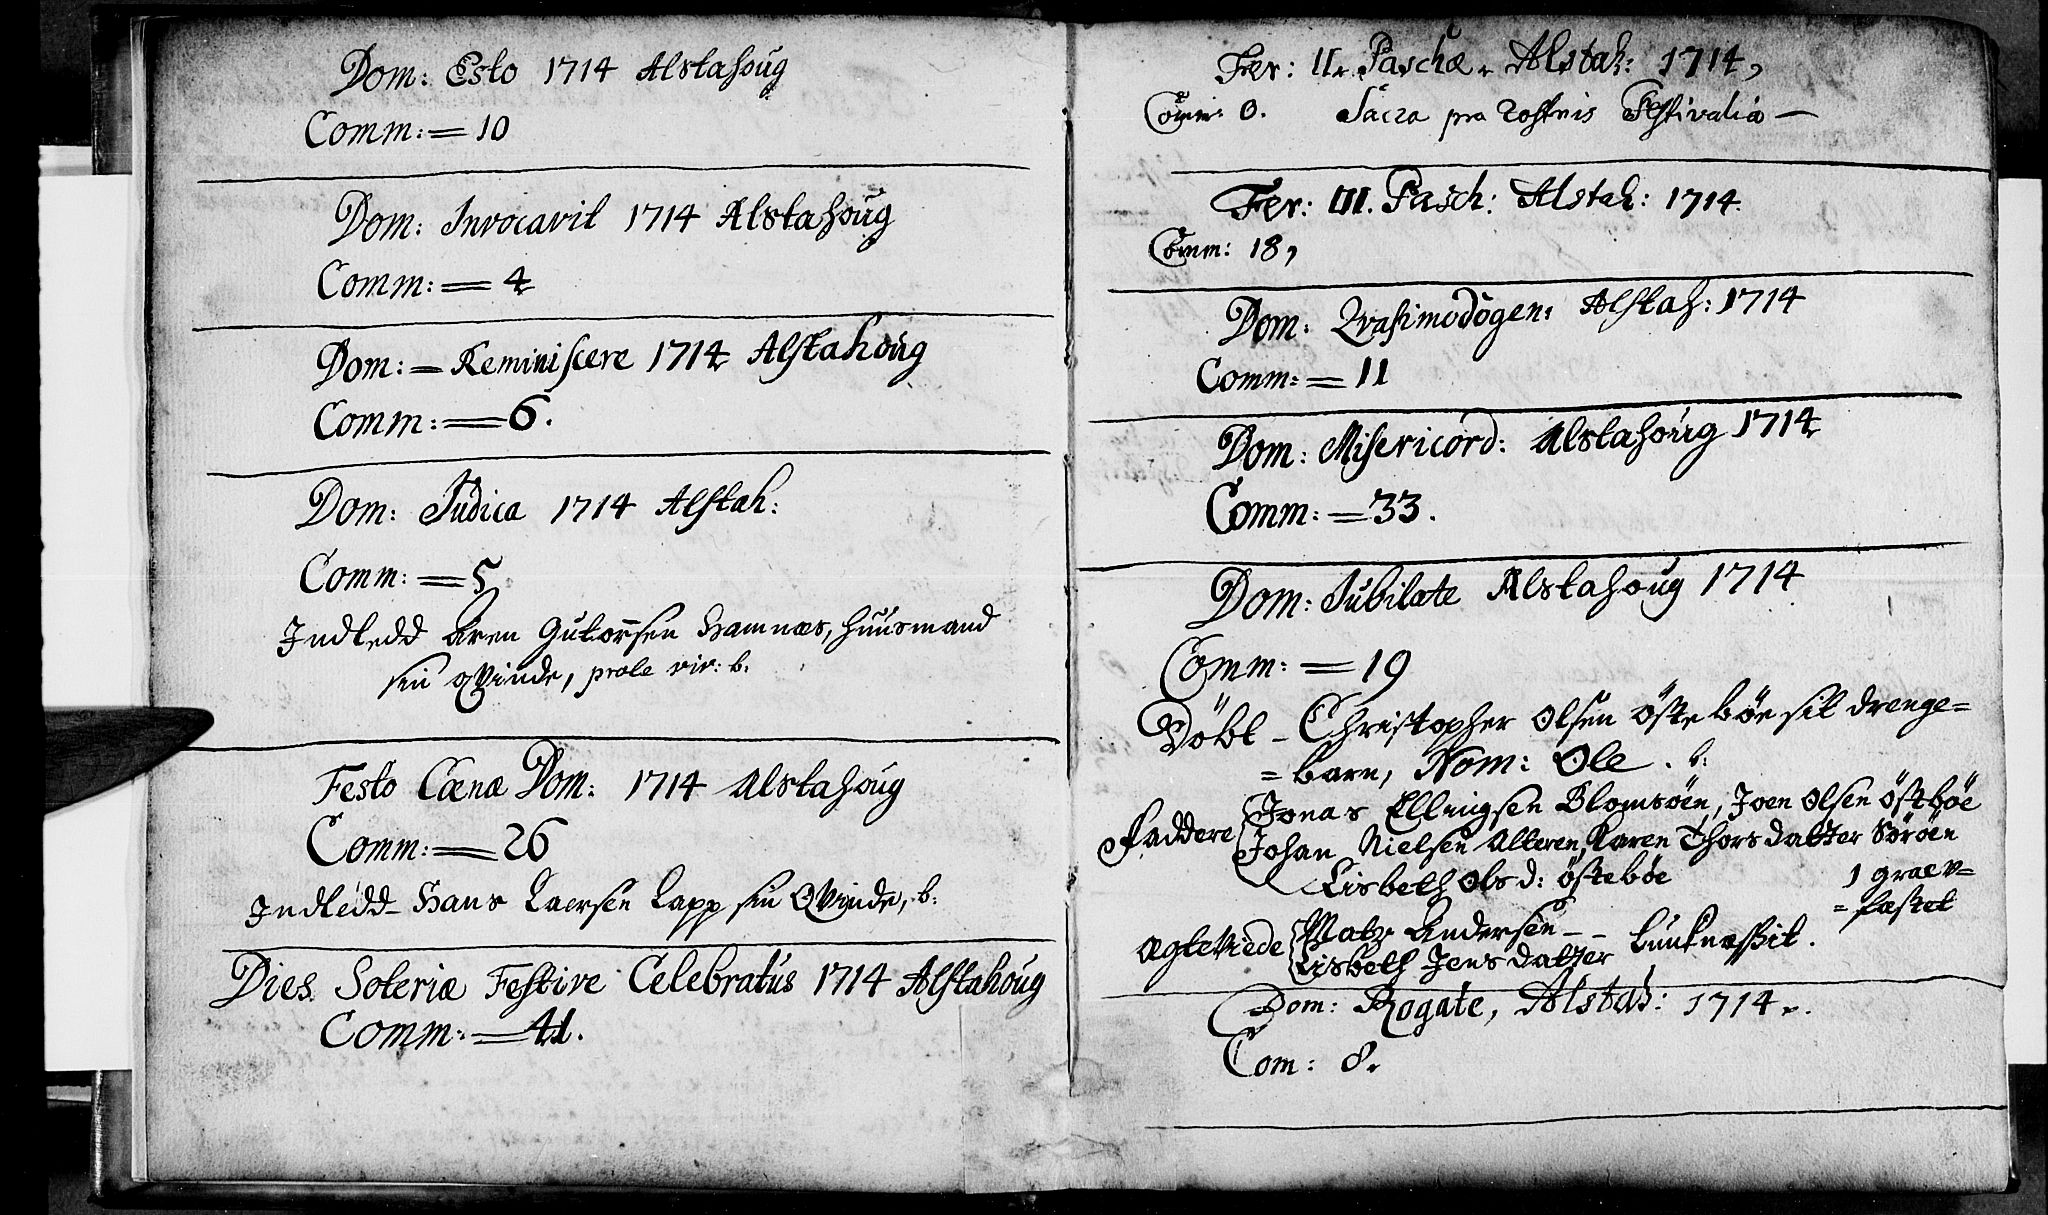 Dom: Esto 1714 Alstahoug
Comm: = 10
Dom: Invocavit 1714 Alstahoug
Comm: = 4
Dom: = Reminiscere 1714 Alstahoug
Comm: = 6.
Dom: Judica 1714 Alstah:
Comm: = 5
Indledd Aren Gutorsen Hamnæs, huusmand
sin qvinde, prole vir: b.
Festo Cænæ Dom: 1714 Alstahoug
Comm: = 26
Indledd Hans Larsen Lapp sin Qvinde, b:
Dies Soteriæ Festive Celebratus 1714 Alstahoug
Comm: = 41.
Fer: II. Paschæ. Alstah: 1714,
Comm: 0. Sacra pro rostris Festivalia —
Fer: III. Pasch: Alstah: 1714.
Comm: 18,
Dom: Qvasimodogen: Alstah: 1714
Comm: = 11
Dom: Misericord: Alstahoug 1714
Comm: = 33.
Dom: Jubilate Alstahoug 1714
Comm: = 19
Döbt – Christopher Olsen östebøe sit drenge=
= barn, Nom: Ole . b:
Faddere Jonas Ellingsen Blomsöen, Joen Olsen östbøe
Johan Nielsen Alteren, Karen Thorsdatter Sörøen
Lisbeth Olsd: östebøe
1 graev=
= fæstet
Ægteviede Matz Andersen – –
Lisbeth Jensdatter
Dom: Rogate, Alstah: 1714.
Com: 8.